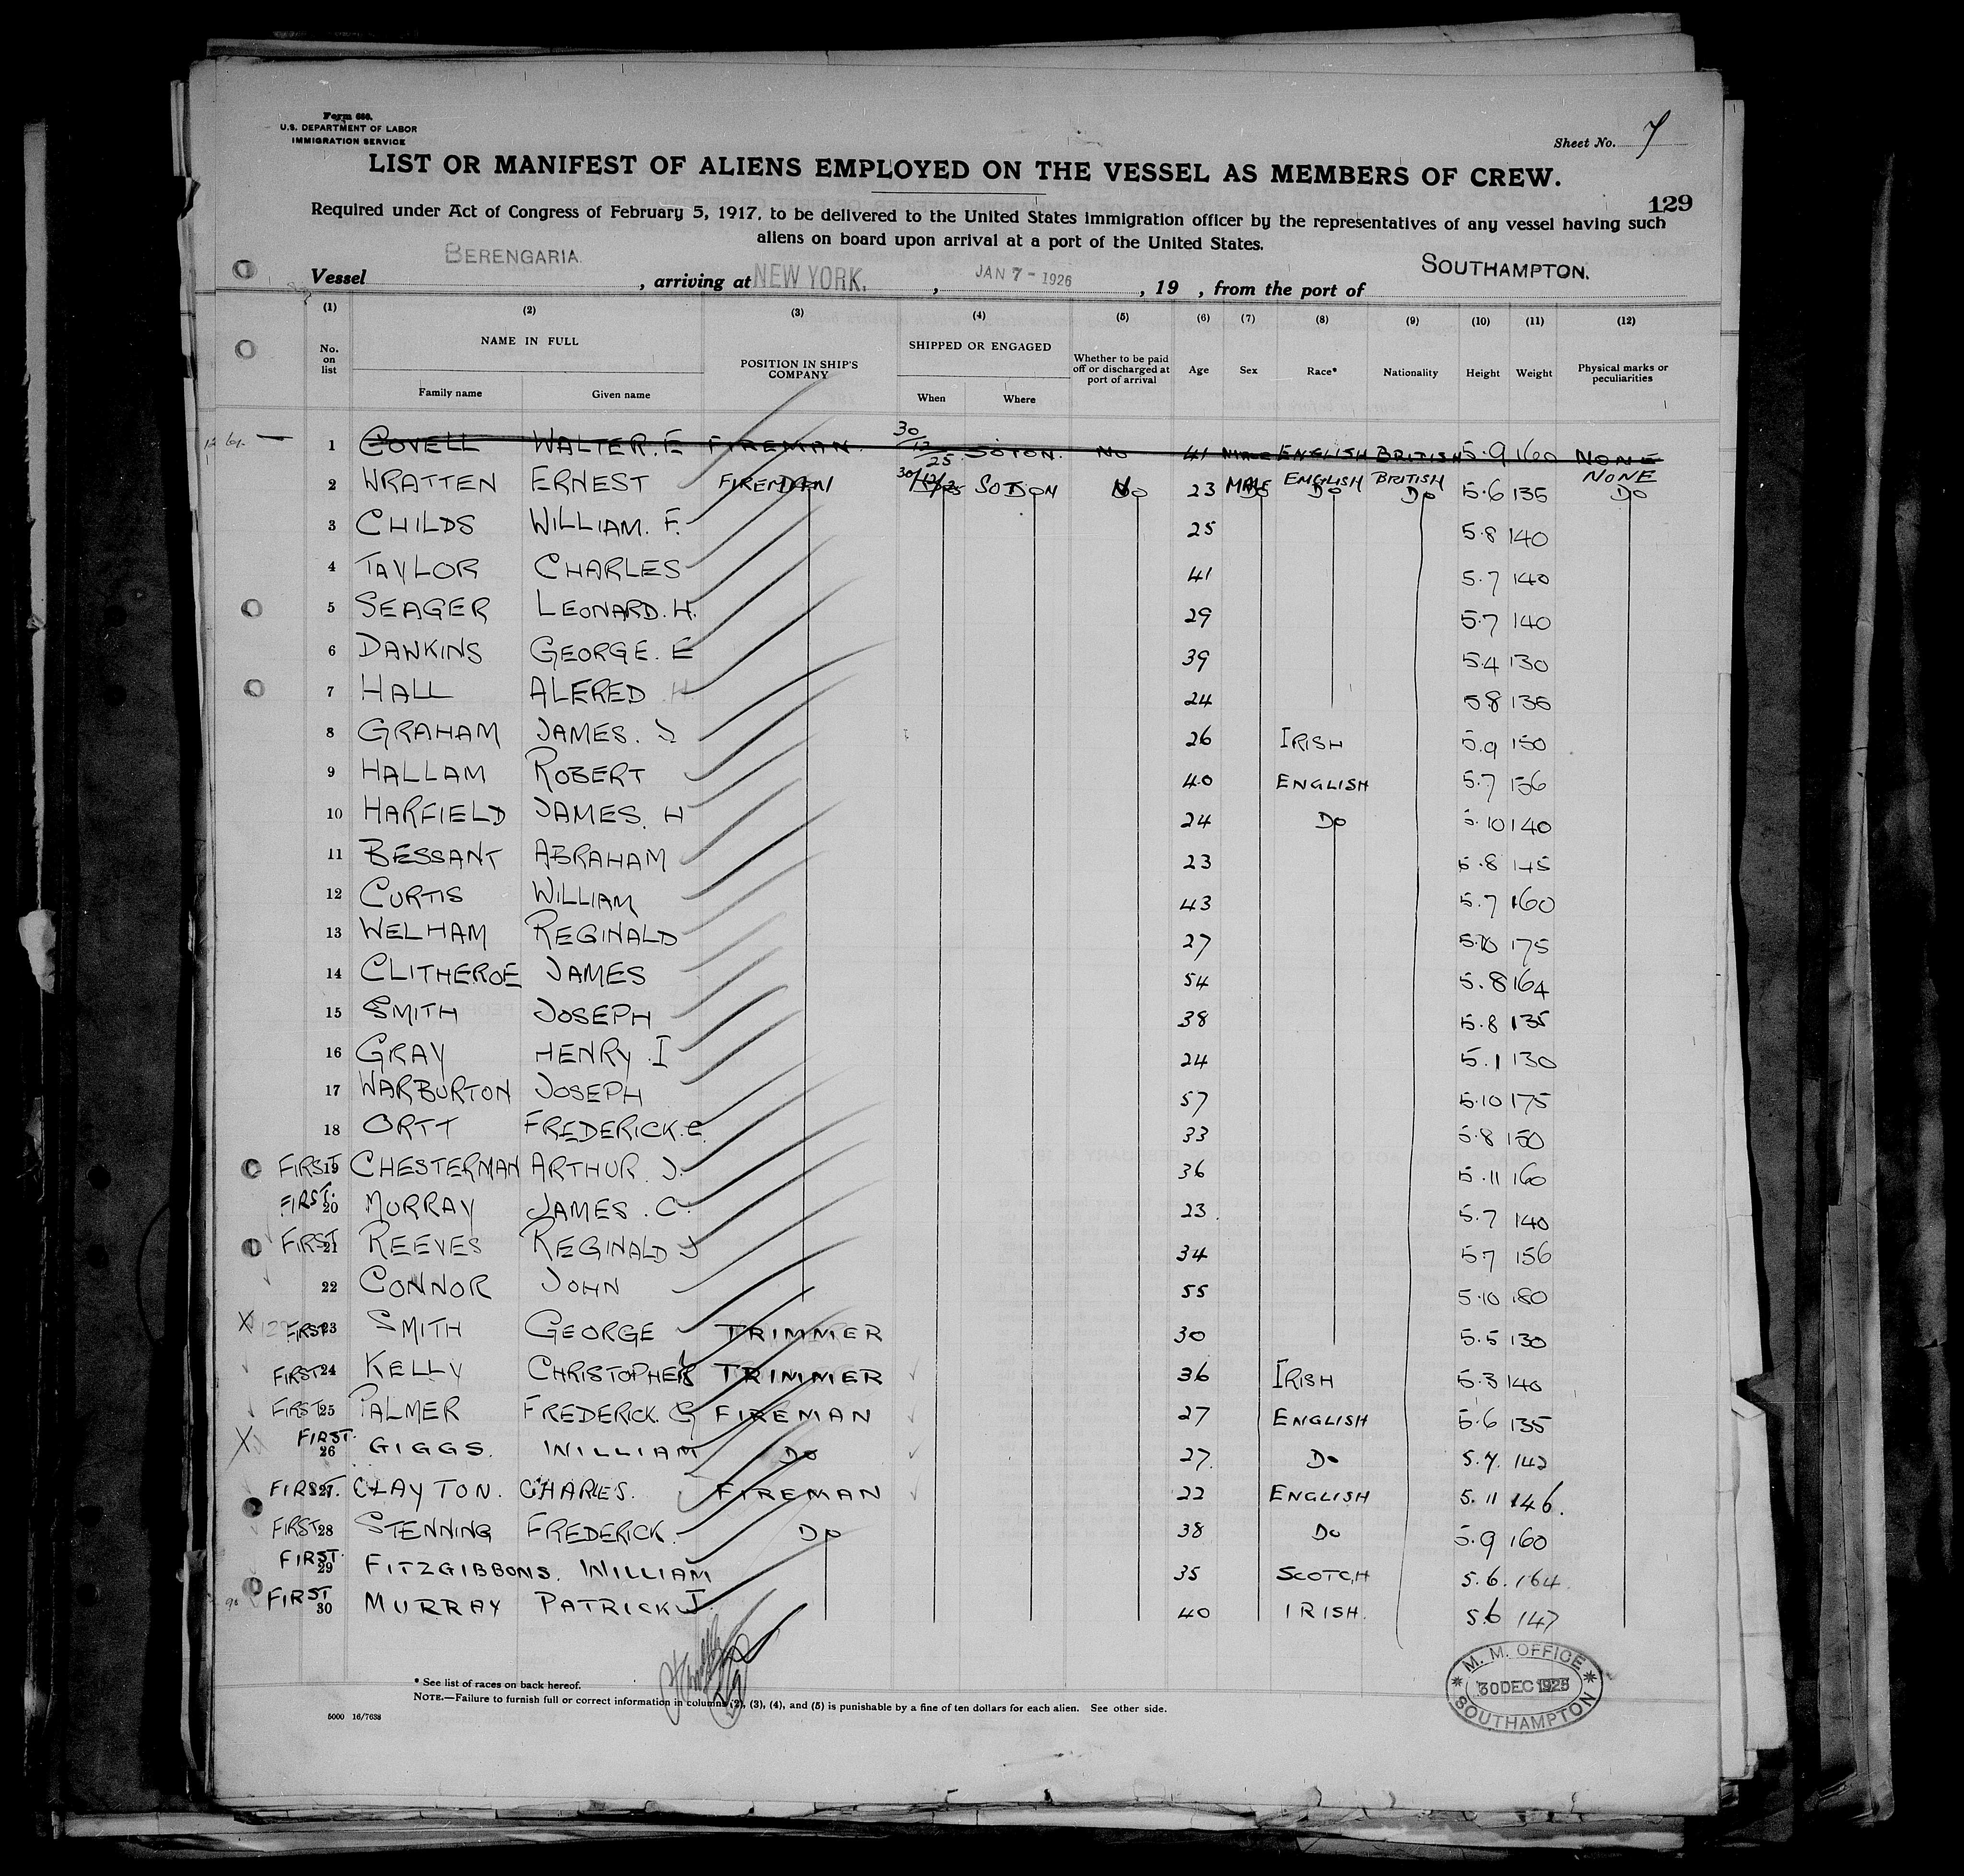 Form 680.
U.S. DEPARTMENT OF LABOR
IMMIGRATION SERVICE
Sheet No. 7
LIST OR MANIFEST OF ALIENS EMPLOYED ON THE VESSEL AS MEMBERS OF CREW.
129
Required under Act of Congress of February 5, 1917, to be delivered to the United States immigration officer by the representatives of any vessel having such
aliens on board upon arrival at a port of the United States.
Vessel BERENGARIA, arriving at NEW YORK, JAN 7 - 1926, 19 , from the port of SOUTHAMPTON.
(1) (2) (3) (4) (5) (6) (7) (8) (9) (10) (11) (12)
No. on list NAME IN FULL POSITION IN SHIP'S COMPANY SHIPPED OR ENGAGED Whether to be paid off or discharged at port of arrival Age Sex Race* Nationality Height Weight Physical marks or peculiarities
Family name Given name When Where
1 COVELL WALTER. E FIREMAN. 30/12/25 SOTON. NO 41 MALE ENGLISH BRITISH 5.9 160 NONE
2 WRATTEN ERNEST FIREMAN 30/12/25 SOTON NO 23 MALE ENGLISH BRITISH 5.6 135 NONE
3 CHILDS WILLIAM. F. 25 5.8 140
4 TAYLOR CHARLES 41 5.7 140
5 SEAGER LEONARD. H. 29 5.7 140
6 DAWKINS GEORGE. E 39 5.4 130
7 HALL ALFRED H 24 5.8 135
8 GRAHAM JAMES. J 26 IRISH 5.9 150
9 HALLAM ROBERT 40 ENGLISH 5.7 156
10 HARFIELD JAMES. H 24 DO 5.10 140
11 BESSANT ABRAHAM 23 5.8 145
12 CURTIS WILLIAM 43 5.7 160
13 WELHAM REGINALD 27 5.10 175
14 CLITHEROE JAMES 54 5.8 164
15 SMITH JOSEPH 38 5.8 135
16 GRAY HENRY. I 24 5.1 130
17 WARBURTON JOSEPH 57 5.10 175
18 ORTT FREDERICK. C. 33 5.8 150
FIRST 19 CHESTERMAN ARTHUR. J. 36 5.11 160
FIRST. 20 MURRAY JAMES. C. 23 5.7 140
FIRST 21 REEVES REGINALD J 34 5.7 156
22 CONNOR JOHN 55 5.10 180
X FIRST 23 SMITH GEORGE TRIMMER 30 5.5 130
FIRST 24 KELLY CHRISTOPHER TRIMMER 36 IRISH 5.3 140
FIRST 25 PALMER FREDERICK. G FIREMAN 27 ENGLISH 5.6 135
X FIRST. 26 GIGGS. WILLIAM DO 27. DO 5.7. 142
FIRST. 27 CLAYTON. CHARLES. FIREMAN 22 ENGLISH 5.11 146.
FIRST 28 STENNING FREDERICK. DO 38 DO 5.9 160
FIRST. 29 FITZGIBBONS. WILLIAM 35 SCOTCH 5.6. 164.
FIRST 30 MURRAY PATRICK J. 40 IRISH. 5.6 147
* See list of races on back hereof.
NOTE.—Failure to furnish full or correct information in columns (2), (3), (4), and (5) is punishable by a fine of ten dollars for each alien. See other side.
5000 16/7638
M. M. OFFICE
30 DEC 1925
SOUTHAMPTON